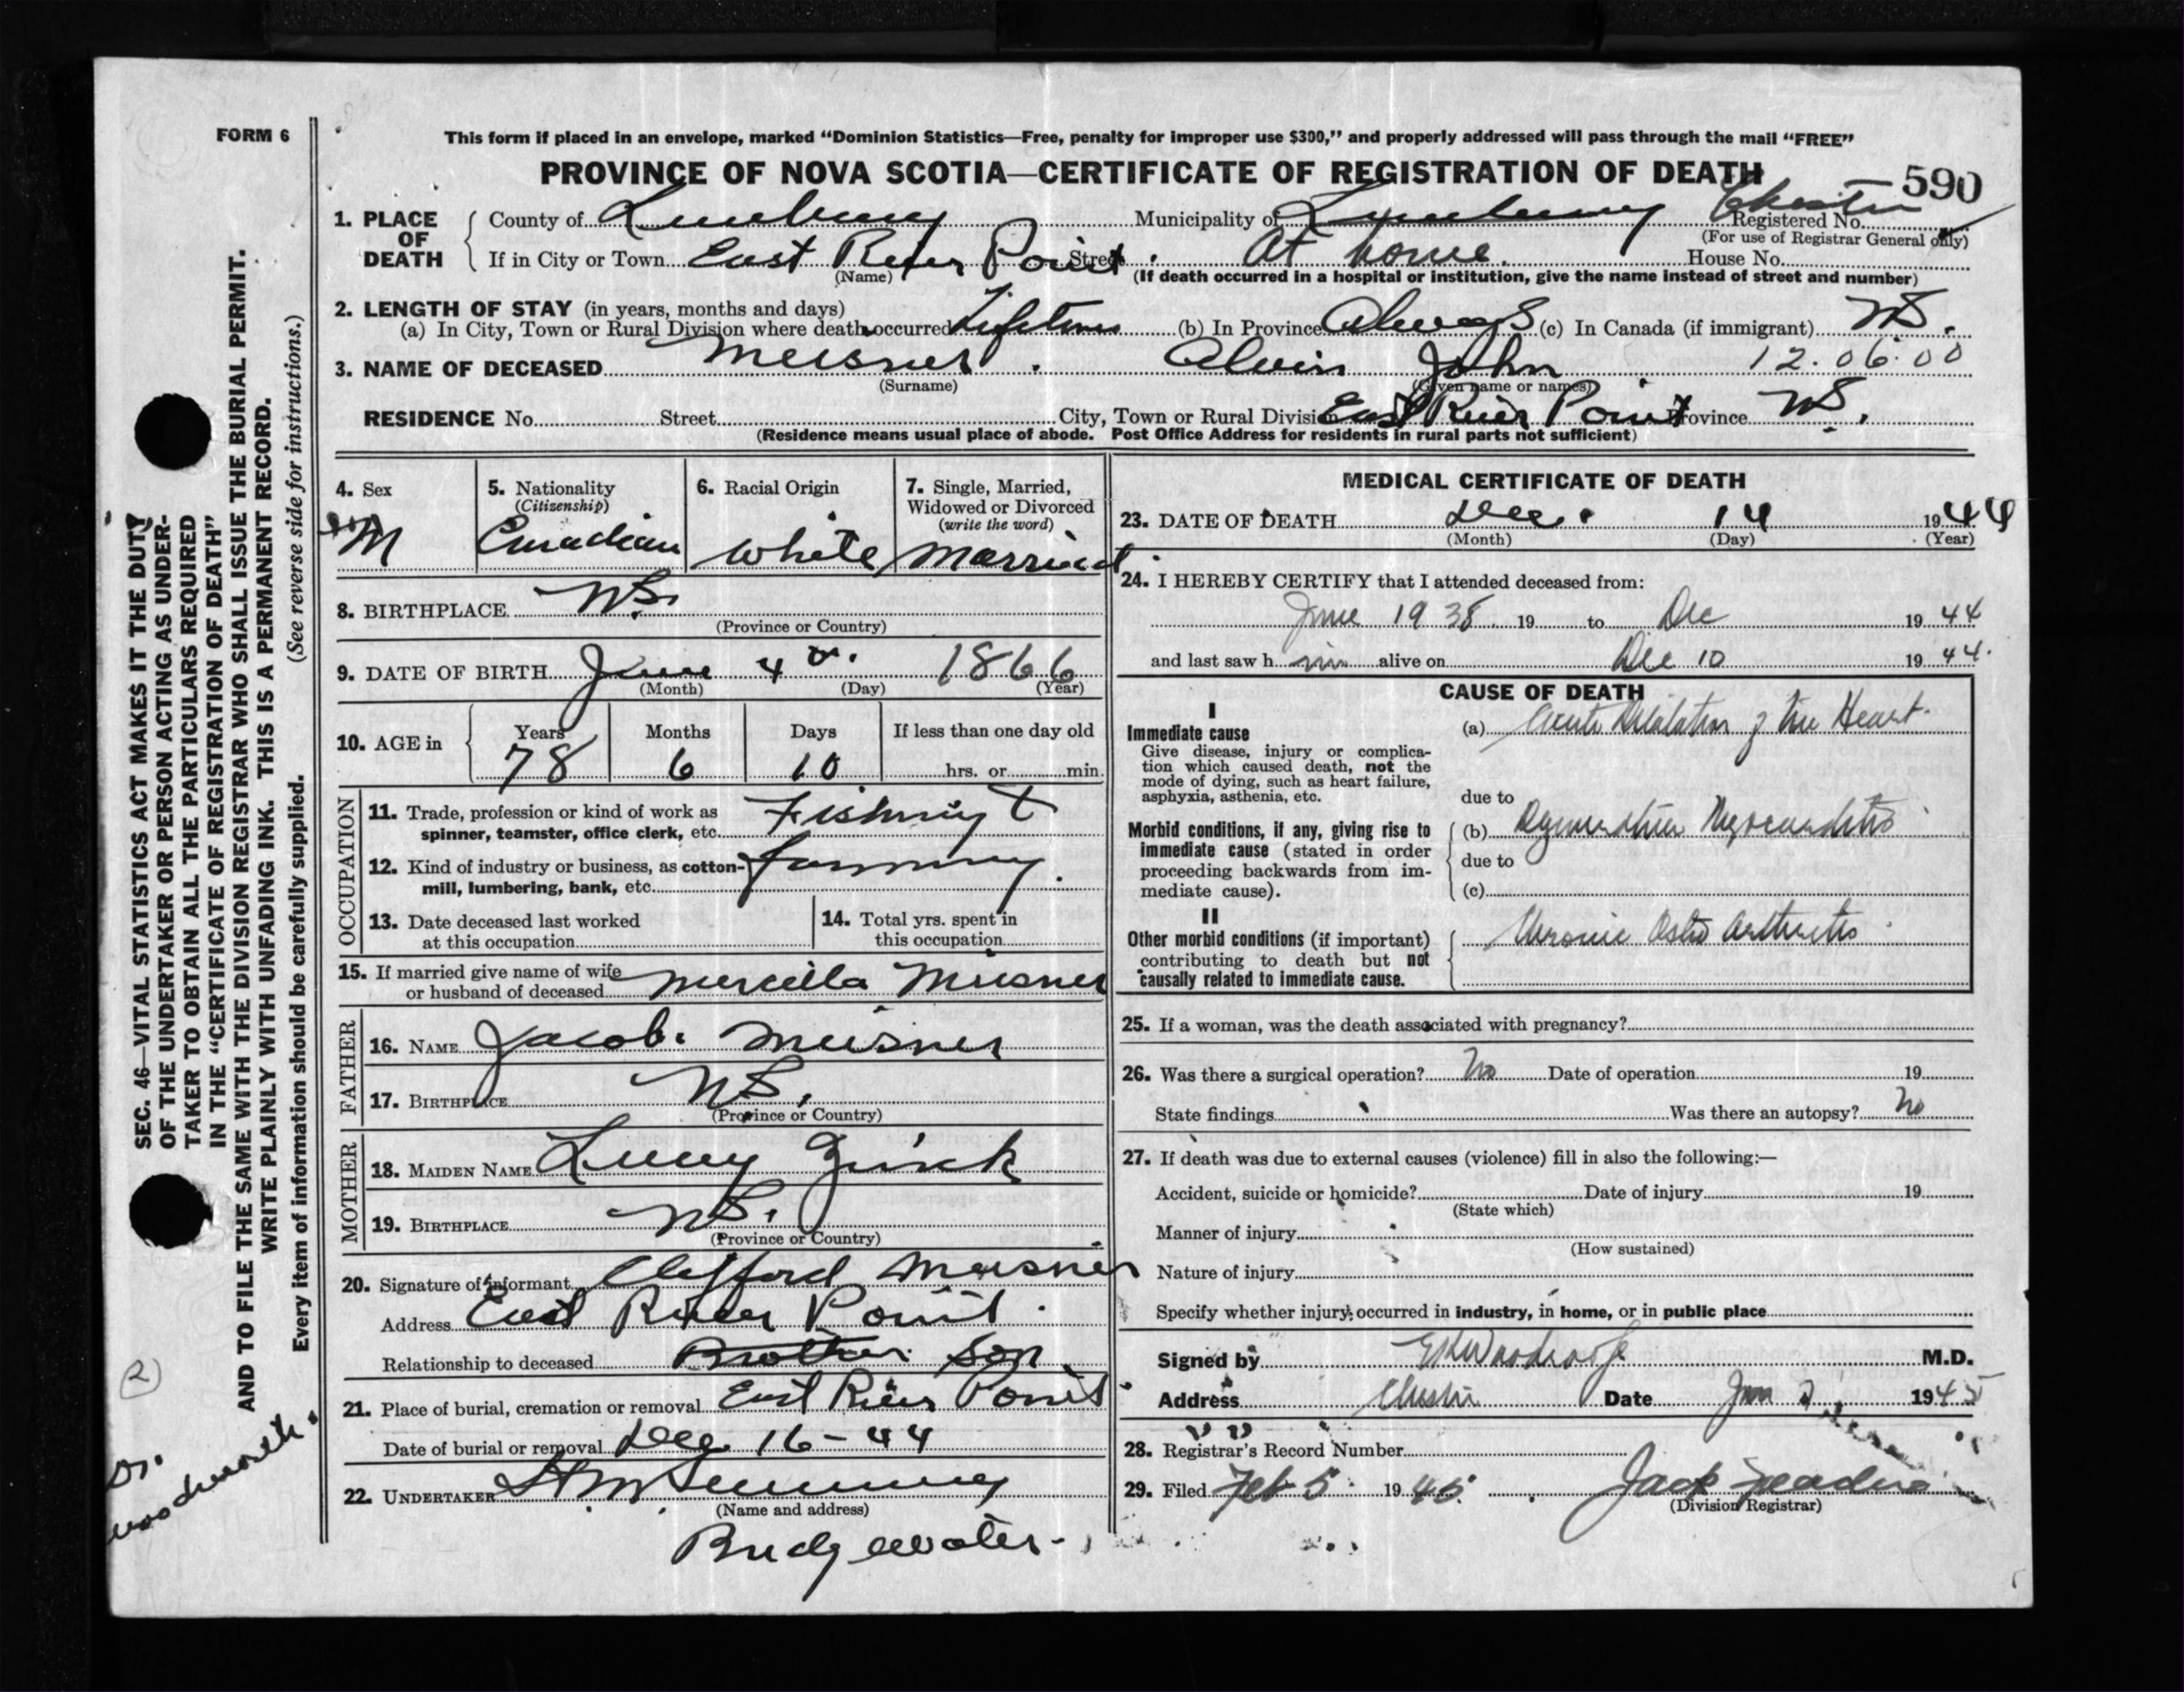 FORM 6
This form if placed in an envelope, marked "Dominion Statistics—Free, penalty for improper use $300," and properly addressed will pass through the mail "FREE"
PROVINCE OF NOVA SCOTIA—CERTIFICATE OF REGISTRATION OF DEATH
590
1. PLACE OF DEATH
County of Lunenburg Municipality of Lunenburg Chester Registered No.
(For use of Registrar General only)
If in City or Town East River Point Street At home. House No.
(Name) (If death occurred in a hospital or institution, give the name instead of street and number)
2. LENGTH OF STAY (in years, months and days)
(a) In City, Town or Rural Division where death occurred Lifetime (b) In Province Always (c) In Canada (if immigrant) NS.
3. NAME OF DECEASED Meisner. Alvin John 12.06.00
(Surname) (Given name or names)
RESIDENCE No. Street City, Town or Rural Division East River Point Province NS.
(Residence means usual place of abode. Post Office Address for residents in rural parts not sufficient)
4. Sex M
5. Nationality (Citizenship) Canadian
6. Racial Origin White
7. Single, Married, Widowed or Divorced (write the word) Married
8. BIRTHPLACE NS.
(Province or Country)
9. DATE OF BIRTH June 4th. 1866
(Month) (Day) (Year)
10. AGE in Years 78 Months 6 Days 10 If less than one day old
hrs. or min.
OCCUPATION
11. Trade, profession or kind of work as
spinner, teamster, office clerk, etc. Fishing &
12. Kind of industry or business, as cotton-
mill, lumbering, bank, etc. farming.
13. Date deceased last worked
at this occupation
14. Total yrs. spent in
this occupation
15. If married give name of wife
or husband of deceased Mercilla Meisner
FATHER
16. NAME Jacob. Meisner
17. BIRTHPLACE NS.
(Province or Country)
MOTHER
18. MAIDEN NAME Lucy Zinck
19. BIRTHPLACE NS.
(Province or Country)
20. Signature of informant Clifford Meisner
Address East River Point.
Relationship to deceased Brother Son
21. Place of burial, cremation or removal East River Point
Date of burial or removal Dec 16-44
22. UNDERTAKER
(Name and address)
Bridgewater-
MEDICAL CERTIFICATE OF DEATH
23. DATE OF DEATH Dec. 14 1944
(Month) (Day) (Year)
24. I HEREBY CERTIFY that I attended deceased from:
June 1938 19 to Dec 1944
and last saw him alive on Dec 10 1944.
CAUSE OF DEATH
I
Immediate cause
Give disease, injury or complica-
tion which caused death, not the
mode of dying, such as heart failure,
asphyxia, asthenia, etc.
(a) Acute Dilatation of the Heart.
due to
Morbid conditions, if any, giving rise to
immediate cause (stated in order
proceeding backwards from im-
mediate cause).
(b) Degenerative Myocarditis
due to
(c)
II
Other morbid conditions (if important)
contributing to death but not
causally related to immediate cause.
Chronic Osteo Arthritis
25. If a woman, was the death associated with pregnancy?
26. Was there a surgical operation? No Date of operation 19
State findings Was there an autopsy? No
27. If death was due to external causes (violence) fill in also the following:—
Accident, suicide or homicide? Date of injury 19
(State which)
Manner of injury
(How sustained)
Nature of injury
Specify whether injury occurred in industry, in home, or in public place
Signed by M.D.
Address Chester Date Jan 2 1945
28. Registrar's Record Number
29. Filed Feb 5 1945 Jack
(Division Registrar)
SEC. 46—VITAL STATISTICS ACT MAKES IT THE DUTY
OF THE UNDERTAKER OR PERSON ACTING AS UNDER-
TAKER TO OBTAIN ALL THE PARTICULARS REQUIRED
IN THE "CERTIFICATE OF REGISTRATION OF DEATH"
AND TO FILE THE SAME WITH THE DIVISION REGISTRAR WHO SHALL ISSUE THE BURIAL PERMIT.
WRITE PLAINLY WITH UNFADING INK. THIS IS A PERMANENT RECORD.
Every item of information should be carefully supplied. (See reverse side for instructions.)
2
Dr.